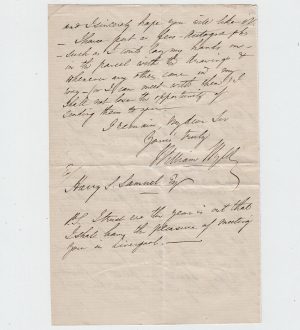 and I sincerely hope you will like it
- I have put a few Autographs
- such as I could lay my hands on -
in the parcel with the drawings &
whenever any other come in my
way - or I can meet with them I
shall not lose the opportunity of
sending them to you
I remain My dear Sir
Yours truly
William Wyld
Harry S. Samuel Esq
PS. I trust ere the year is out that
I shall have the pleasure of meeting
you in Liverpool.